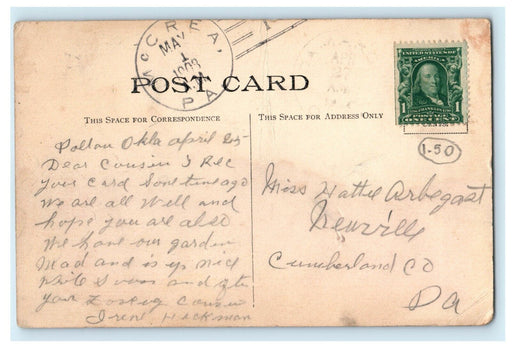 McCREA,
MAY
1
1908
PA.
POST CARD
THIS SPACE FOR CORRESPONDENCE
THIS SPACE FOR ADDRESS ONLY
1 POSTAGE 1
ONE CENT
1-50
Okla April 25
Dear Cousin I Rec
your Card Sometime ago
We are all Well and
hope you are also
We have our garden
Mad and is up nice
Write Soon and
your Cousin
Irene Hickman
Miss Hattie Arbegast
Newville
Cumberland Co
Pa